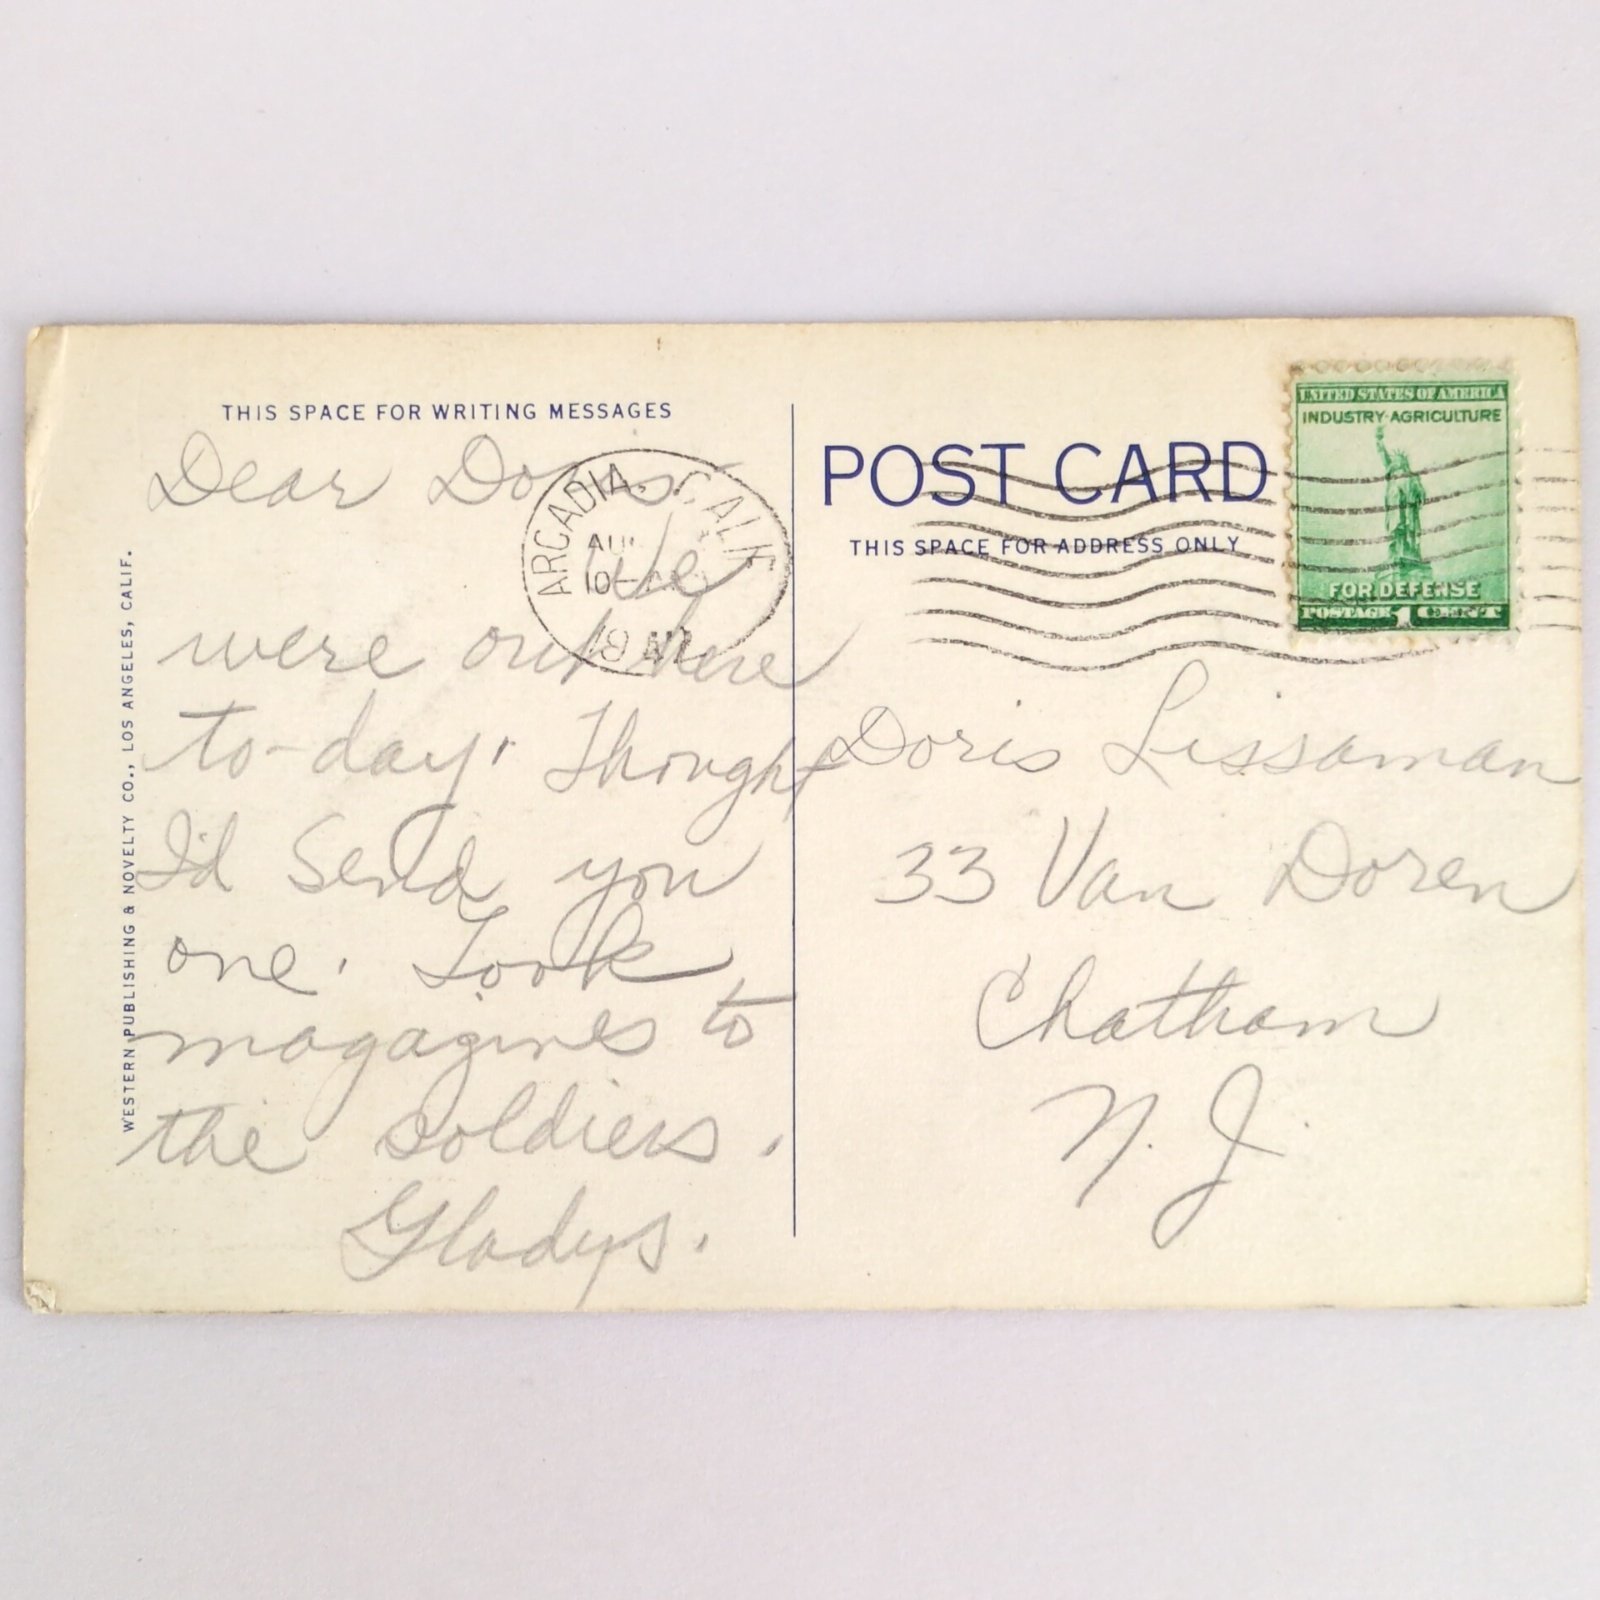 THIS SPACE FOR WRITING MESSAGES
Dear Doris
We
were out here
to-day. Thought
I'd send you
one. Took
magazines to
the soldiers.
Gladys.
WESTERN PUBLISHING & NOVELTY CO., LOS ANGELES, CALIF.
ARCADIA, CALIF.
POST CARD
THIS SPACE FOR ADDRESS ONLY
UNITED STATES OF AMERICA
INDUSTRY AGRICULTURE
FOR DEFENSE
POSTAGE 1 CENT
Doris Lissaman
33 Van Doren
Chatham
N. J.